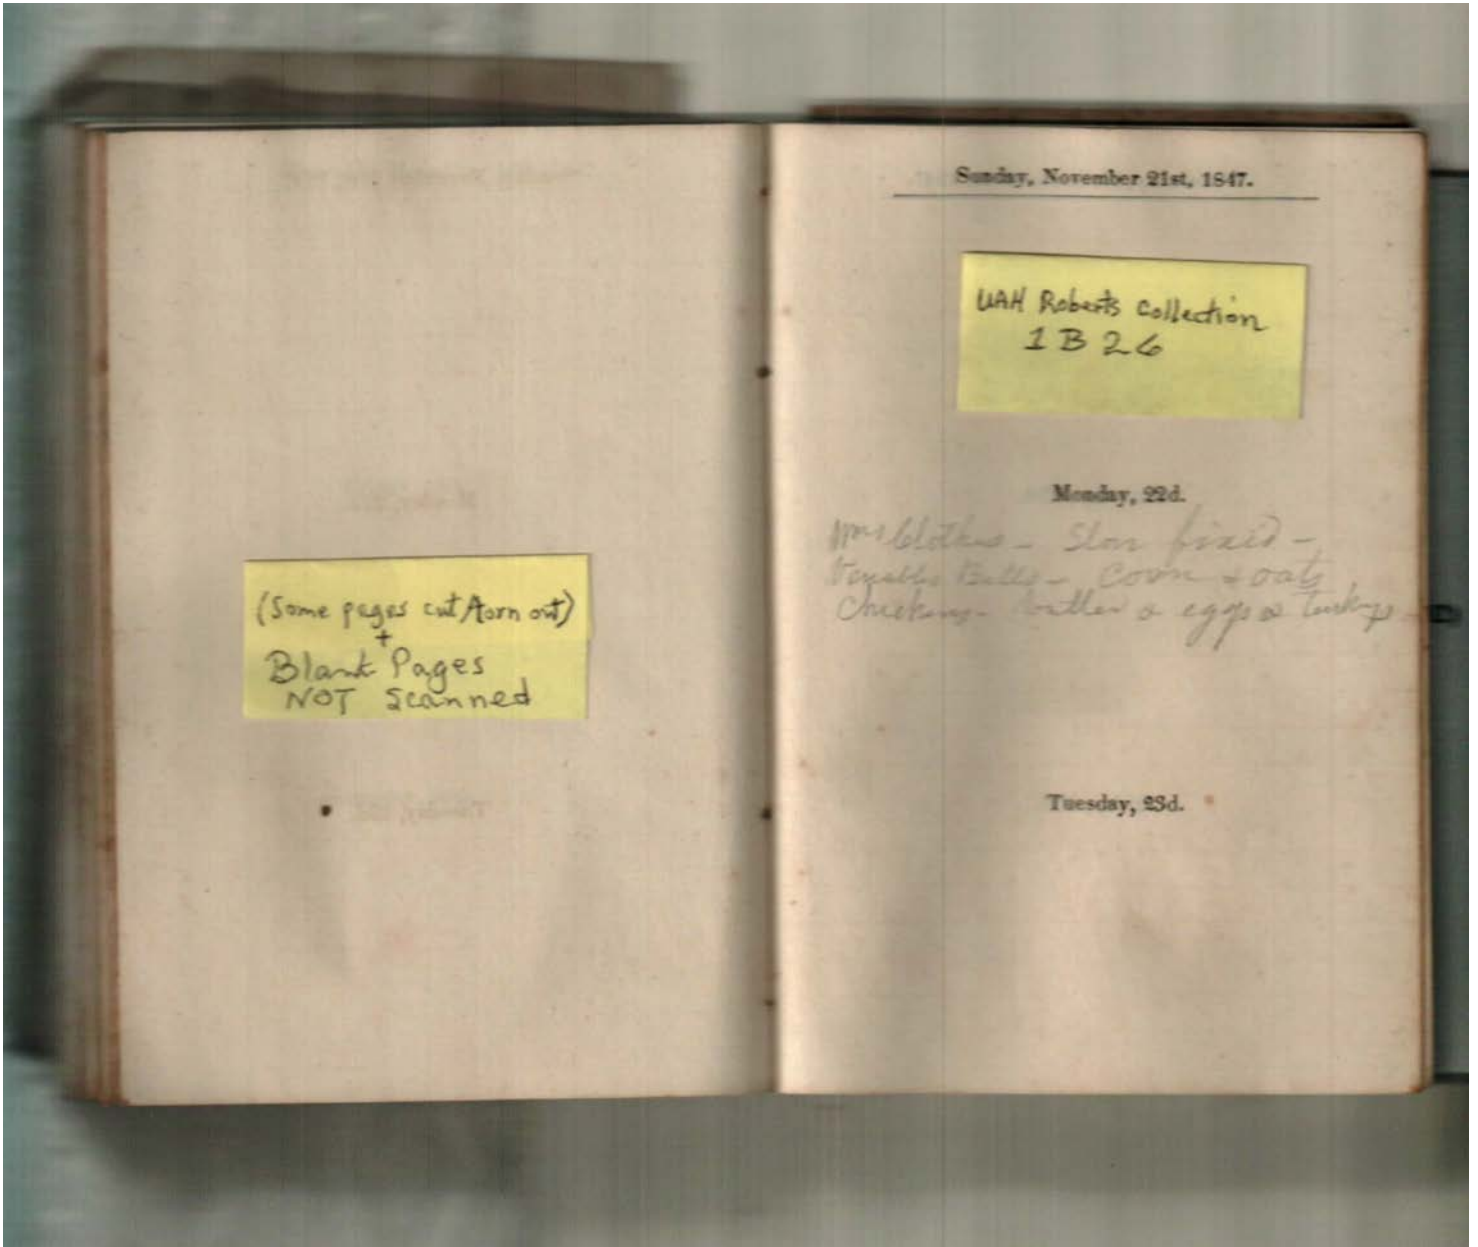 (Some pages cut/torn out)
+
Blank Pages
NOT Scanned
Sunday, November 21st, 1847.
UAH Roberts Collection
1 B 26
Monday, 22d.
Clothes - fixed -
Bells - Corn & oats
Chickens - butter & eggs & turkeys
Tuesday, 23d.